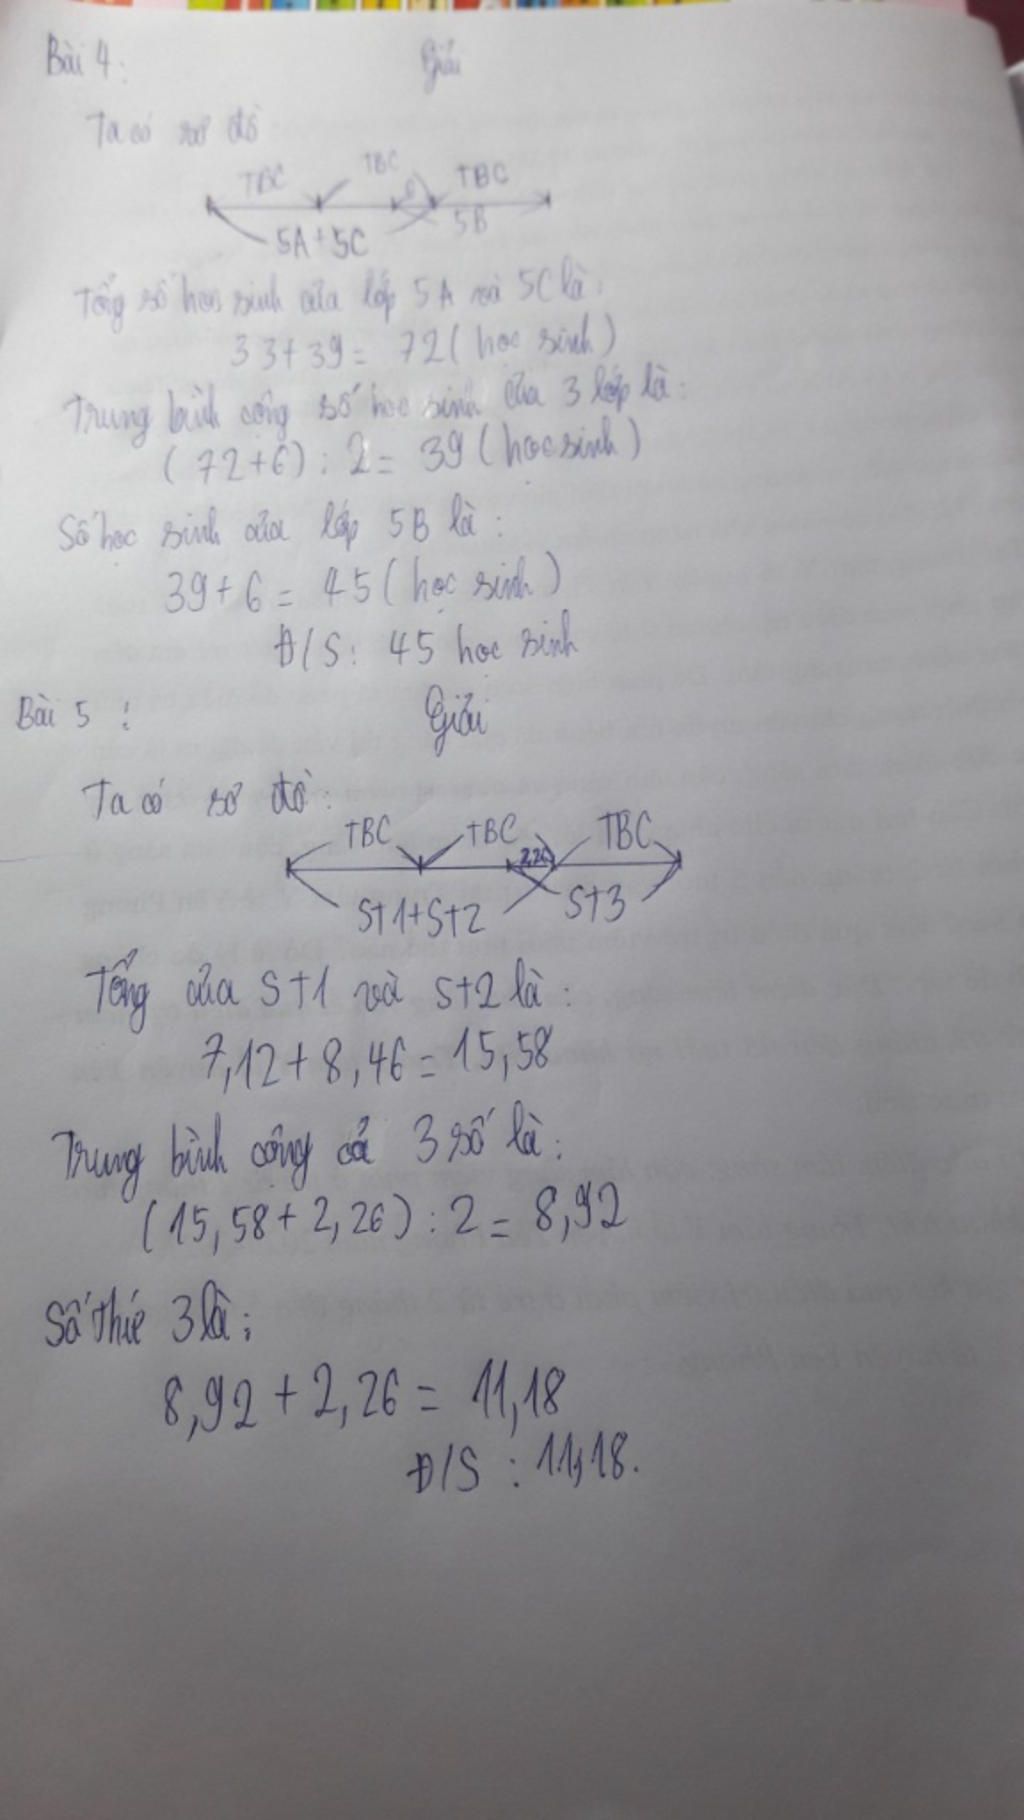 Bài 4: Giải
Ta có sơ đồ
TBC TBC 6 TBC
5A+5C 5B
Tổng số học sinh của lớp 5A và 5C là:
33+39= 72 (học sinh)
Trung bình cộng số học sinh của 3 lớp là:
(72+6) : 2 = 39 (học sinh)
Số học sinh của lớp 5B là:
39+6 = 45 (học sinh)
Đ/S: 45 học sinh
Bài 5: Giải
Ta có sơ đồ:
TBC TBC 2,26 TBC
St1+St2 St3
Tổng của St1 và St2 là:
7,12+8,46=15,58
Trung bình cộng cả 3 số là:
(15,58+2,26) : 2 = 8,92
Số thứ 3 là:
8,92+2,26 = 11,18
Đ/S: 11,18.